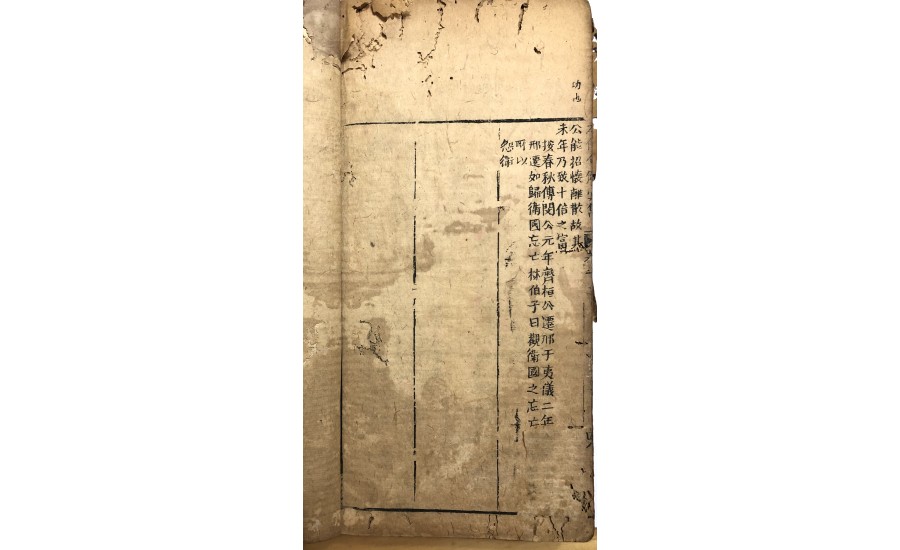 公能招懷離散故其
末年乃致十倍之富
按春秋傳閔公元年齊桓公遷邢于夷儀二年
邢遷如歸衛國忘亡林伯子曰觀衛國之忘亡
可以
怨衛